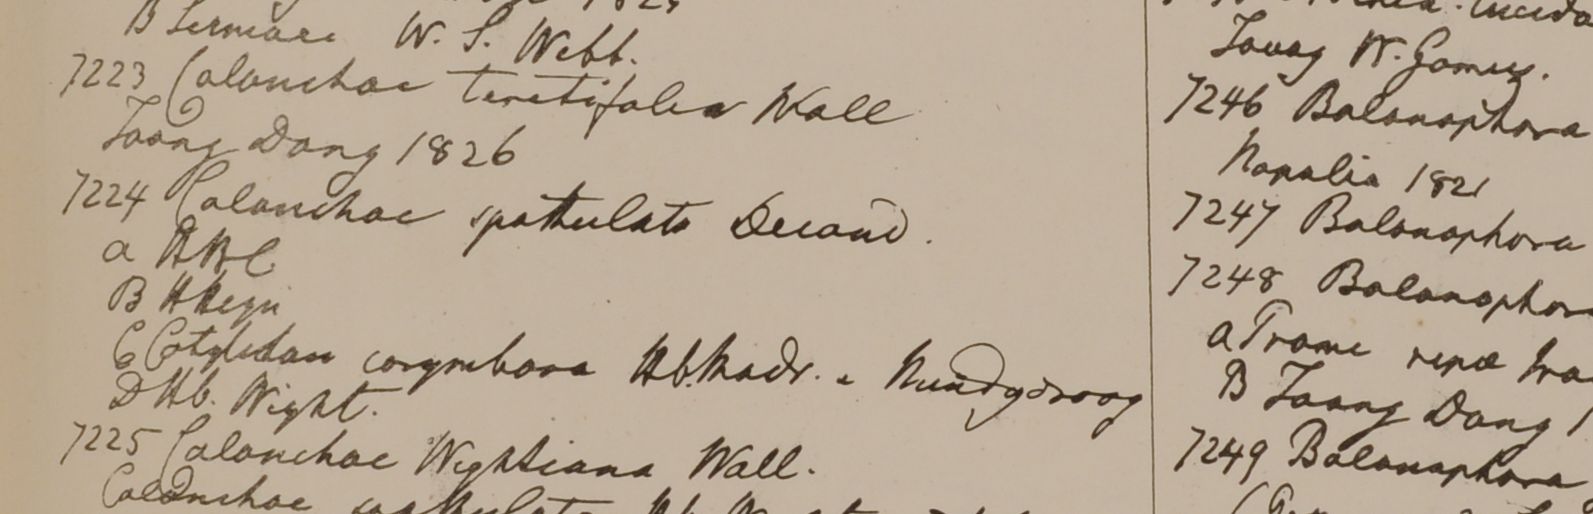 B W. S. Webb.
7223 Calanchae teretifolia Wall
Toong Dong 1826
7224 Calanchae spathulata Decand.
a HBC
B HHeyn
C Cotyledon corymbosa Hb. Madr. e Nundydroog
D Hb. Wight.
7225 Calanchae Wightiana Wall.
Calanchae spathulata Hb.
Toong W. Gomez.
7246 Balanophora
Napalia 1821
7247 Balanophora
7248 Balanophor
a Prome ripæ Ira
B Toong Dong 1
7249 Balanophora